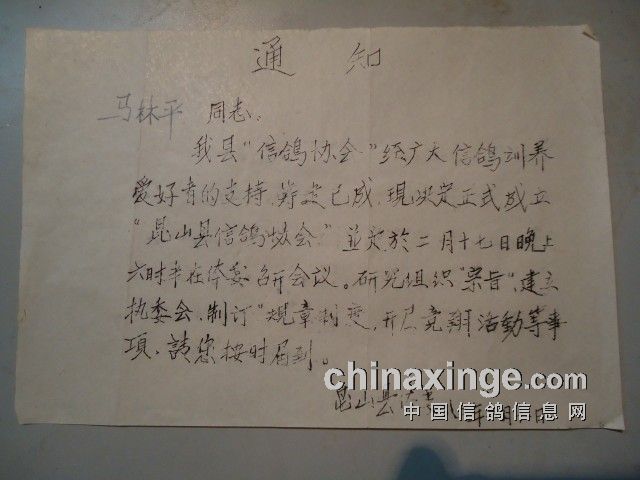 通 知
马林平 同志.
我县"信鸽协会"经广大信鸽训养
爱好者的支持,筹建已成,現决定正式成立
"昆山县信鸽协会"並定於二月十七日晚上
六时半在体委召开会议。研究组织"宗旨",建立
执委会,制订"規章制度,开展竞翔活動等事
項,請您按时届到。
昆山县体委
chinaxinge.com
中国信鸽信息网